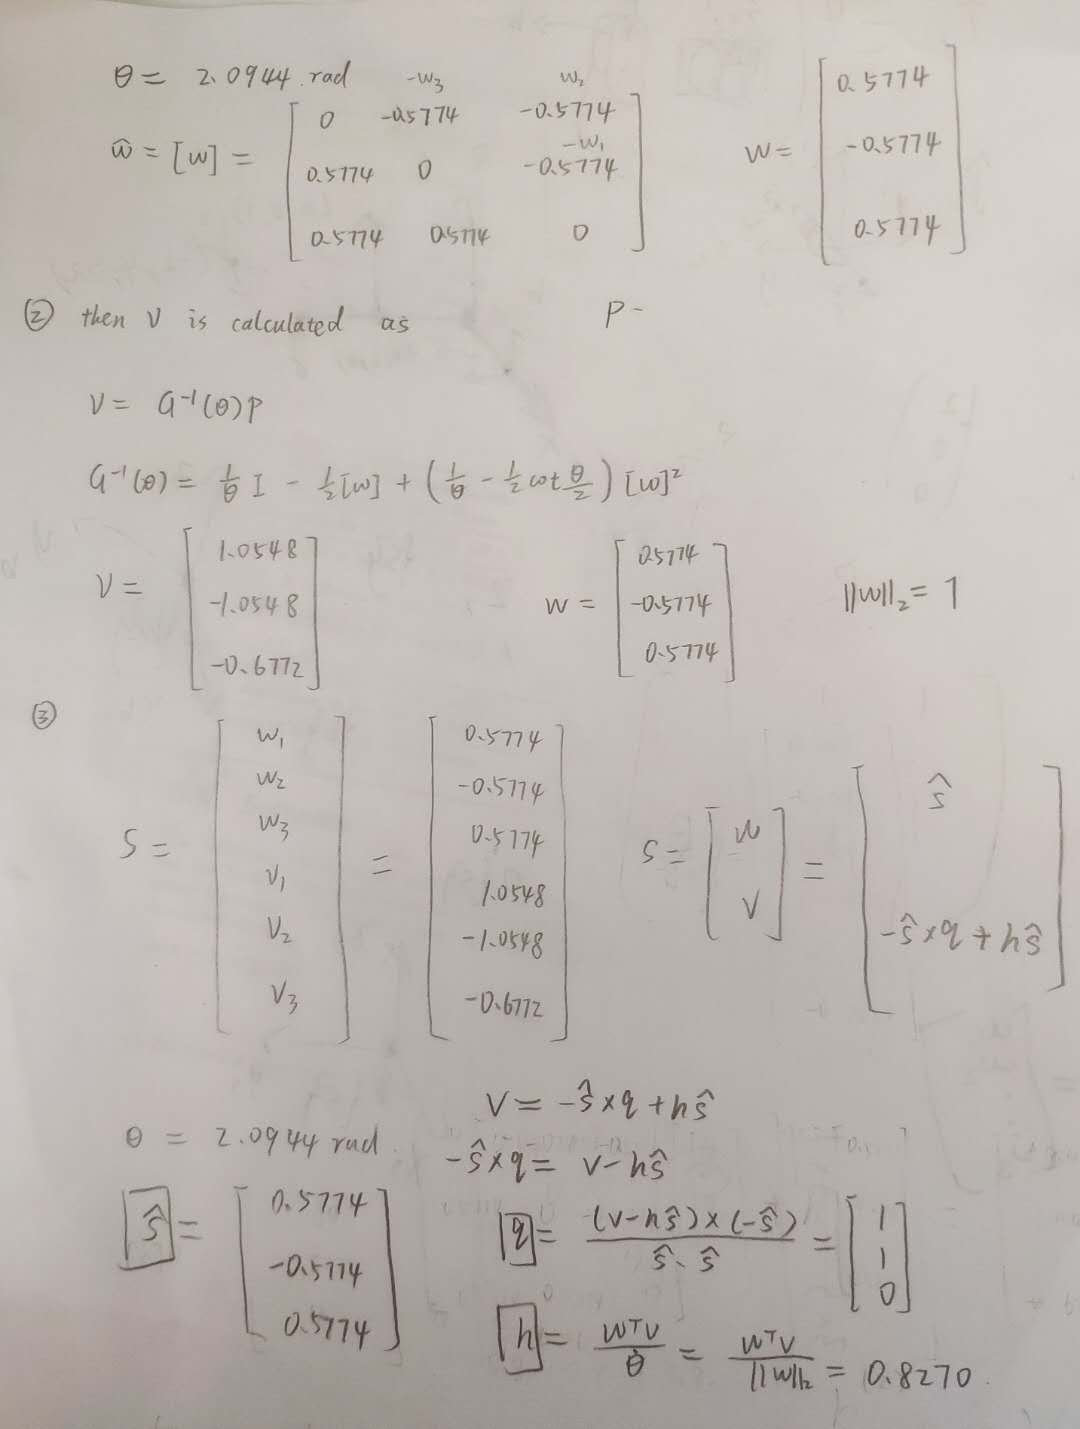 θ = 2.0944 rad
-w₃ w₂
ŵ = [w] = [ 0 -0.5774 -0.5774
-w₁
0.5774 0 -0.5774
0.5774 0.5774 0 ]
w = [ 0.5774
-0.5774
0.5774 ]
② then v is calculated as
P -
v = G⁻¹(θ)p
G⁻¹(θ) = 1/θ I - 1/2[w] + (1/θ - 1/2 cot θ/2) [w]²
v = [ 1.0548
-1.0548
-0.6772 ]
w = [ 0.5774
-0.5774
0.5774 ]
||w||₂ = 1
③
S = [ w₁
w₂
w₃
v₁
v₂
v₃ ]
= [ 0.5774
-0.5774
0.5774
1.0548
-1.0548
-0.6772 ]
S = [ w
v ]
= [ ŝ
-ŝ×q + hŝ ]
v = -ŝ×q + hŝ
θ = 2.0944 rad.
-ŝ×q = v-hŝ
ŝ = [ 0.5774
-0.5774
0.5774 ]
q = (v-hŝ)×(-ŝ) / ŝ·ŝ = [ 1
1
0 ]
h = wᵀv / θ̇ = wᵀv / ||w||₂ = 0.8270.